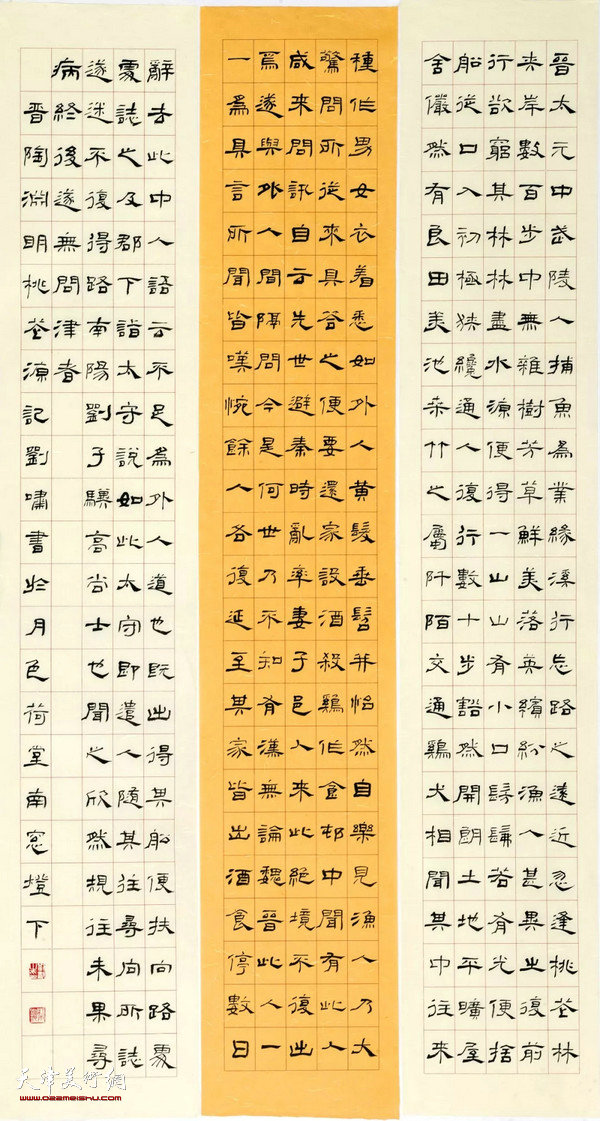 晉太元中武陵人捕魚為業緣溪行忘路之遠近忽逢桃花林
夾岸數百步中無雜樹芳草鮮美落英繽紛漁人甚異之復前
行欲窮其林林盡水源便得一山山有小口髣髴若有光便捨
船從口入初極狹纔通人復行數十步豁然開朗土地平曠屋
舍儼然有良田美池桑竹之屬阡陌交通鷄犬相聞其中往來
種作男女衣着悉如外人黃髮垂髫并怡然自樂見漁人乃大
驚問所從來具答之便要還家設酒殺鷄作食邨中聞有此人
咸來問訊自云先世避秦時亂率妻子邑人來此絕境不復出
焉遂與外人間隔問今是何世乃不知有漢無論魏晉此人一
一為具言所聞皆嘆惋餘人各復延至其家皆出酒食停數日
辭去此中人語云不足為外人道也既出得其船便扶向路處
處誌之及郡下詣太守說如此太守即遣人隨其往尋向所誌
遂迷不復得路南陽劉子驥高尚士也聞之欣然規往未果尋
病終後遂無問津者
晉陶淵明桃花源記劉嘯書於月色荷堂南窓燈下
天津美術網
www.022meishu.com